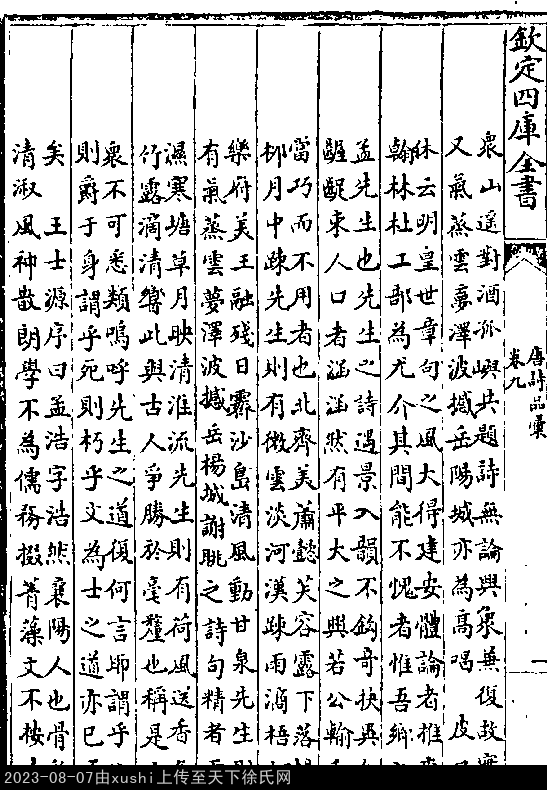 欽定四庫全書
唐詩品彙
卷九
衆山遥對酒孤嶼共題詩無論興象兼復故實
又氣蒸雲夢澤波撼岳陽城亦為髙唱　皮
休云明皇世章句之風大得建安體論者推
翰林杜工部為尤介其間能不愧者惟吾鄉
孟先生也先生之詩遇景入韻不鈎竒抉異
齷齪束人口者涵涵然有平大之興若公輸
當巧而不用者也北齊美蕭慤芙容露下落
栁月中踈先生則有微雲淡河漢踈雨滴梧
樂府美王融殘日霽沙島清風動甘泉先生則
有氣蒸雲夢澤波撼岳楊城謝脁之詩句精者
濕寒塘草月映清淮流先生則有荷風送香
竹露滴清響此與古人爭勝於毫釐也稱是
衆不可悉類嗚呼先生之道復何言耶謂乎
則爵于身謂乎死則朽乎文為士之道亦已
矣　王士源序曰孟浩字浩然襄陽人也骨
清淑風神散朗學不為儒務掇菁藻文不按
2023-08-07由xushi上传至天下徐氏网